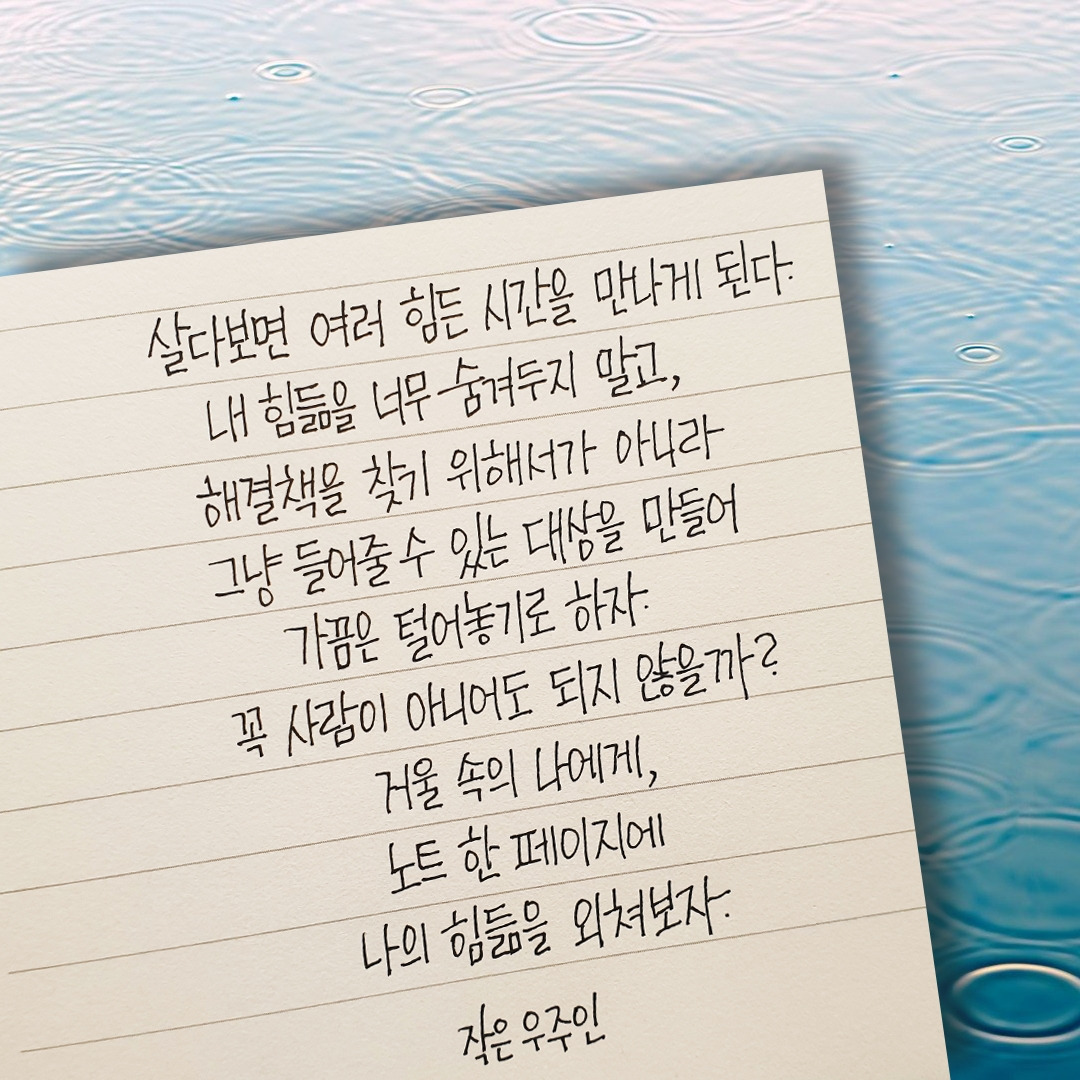 살다보면 여러 힘든 시간을 만나게 된다.
내 힘듦을 너무 숨겨두지 말고,
해결책을 찾기 위해서가 아니라
그냥 들어줄 수 있는 대상을 만들어
가끔은 털어놓기로 하자.
꼭 사람이 아니어도 되지 않을까?
거울 속의 나에게,
노트 한 페이지에
나의 힘듦을 외쳐보자.
작은 우주인